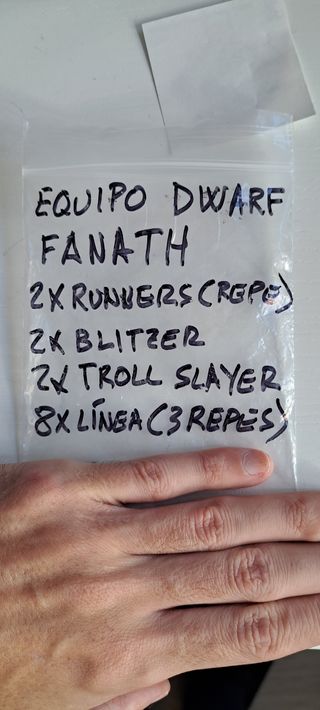 EQUIPO DWARF
FANATH
2X RUNNERS (REPE)
2X BLITZER
2X TROLL SLAYER
8X LÍNEA (3 REPES)